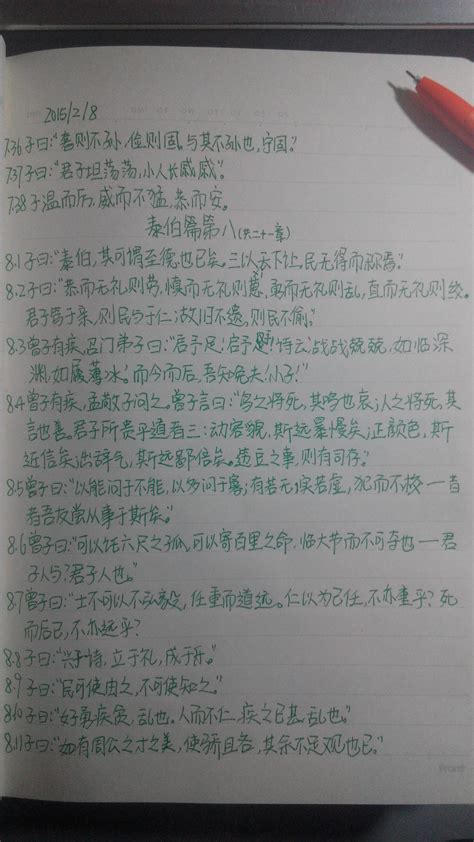 2015/2/8
7.36子曰:“奢则不孙,俭则固。与其不孙也,宁固。”
7.37子曰:“君子坦荡荡,小人长戚戚。”
7.38子温而厉,威而不猛,恭而安。
泰伯篇第八(共二十一章)
8.1子曰:“泰伯,其可谓至德也已矣。三以天下让,民无得而称焉。”
8.2子曰:“恭而无礼则劳,慎而无礼则葸,勇而无礼则乱,直而无礼则绞。
君子笃于亲,则民兴于仁;故旧不遗,则民不偷。”
8.3曾子有疾,召门弟子曰:“启予足!启予手!诗云‘战战兢兢,如临深
渊,如履薄冰。’而今而后,吾知免夫!小子!”
8.4曾子有疾,孟敬子问之。曾子言曰:“鸟之将死,其鸣也哀;人之将死,其
言也善。君子所贵乎道者三:动容貌,斯远暴慢矣;正颜色,斯
近信矣;出辞气,斯远鄙倍矣。笾豆之事,则有司存。”
8.5曾子曰:“以能问于不能,以多问于寡;有若无,实若虚,犯而不校—昔
者吾友尝从事于斯矣。”
8.6曾子曰:“可以托六尺之孤,可以寄百里之命,临大节而不可夺也—君
子人与?君子人也。”
8.7曾子曰:“士不可以不弘毅,任重而道远。仁以为己任,不亦重乎?死
而后已,不亦远乎?
8.8子曰:“兴于诗,立于礼,成于乐。”
8.9子曰:“民可使由之,不可使知之。”
8.10子曰:“好勇疾贫,乱也。人而不仁,疾之已甚,乱也。”
8.11子曰:“如有周公之才之美,使骄且吝,其余不足观也已。”